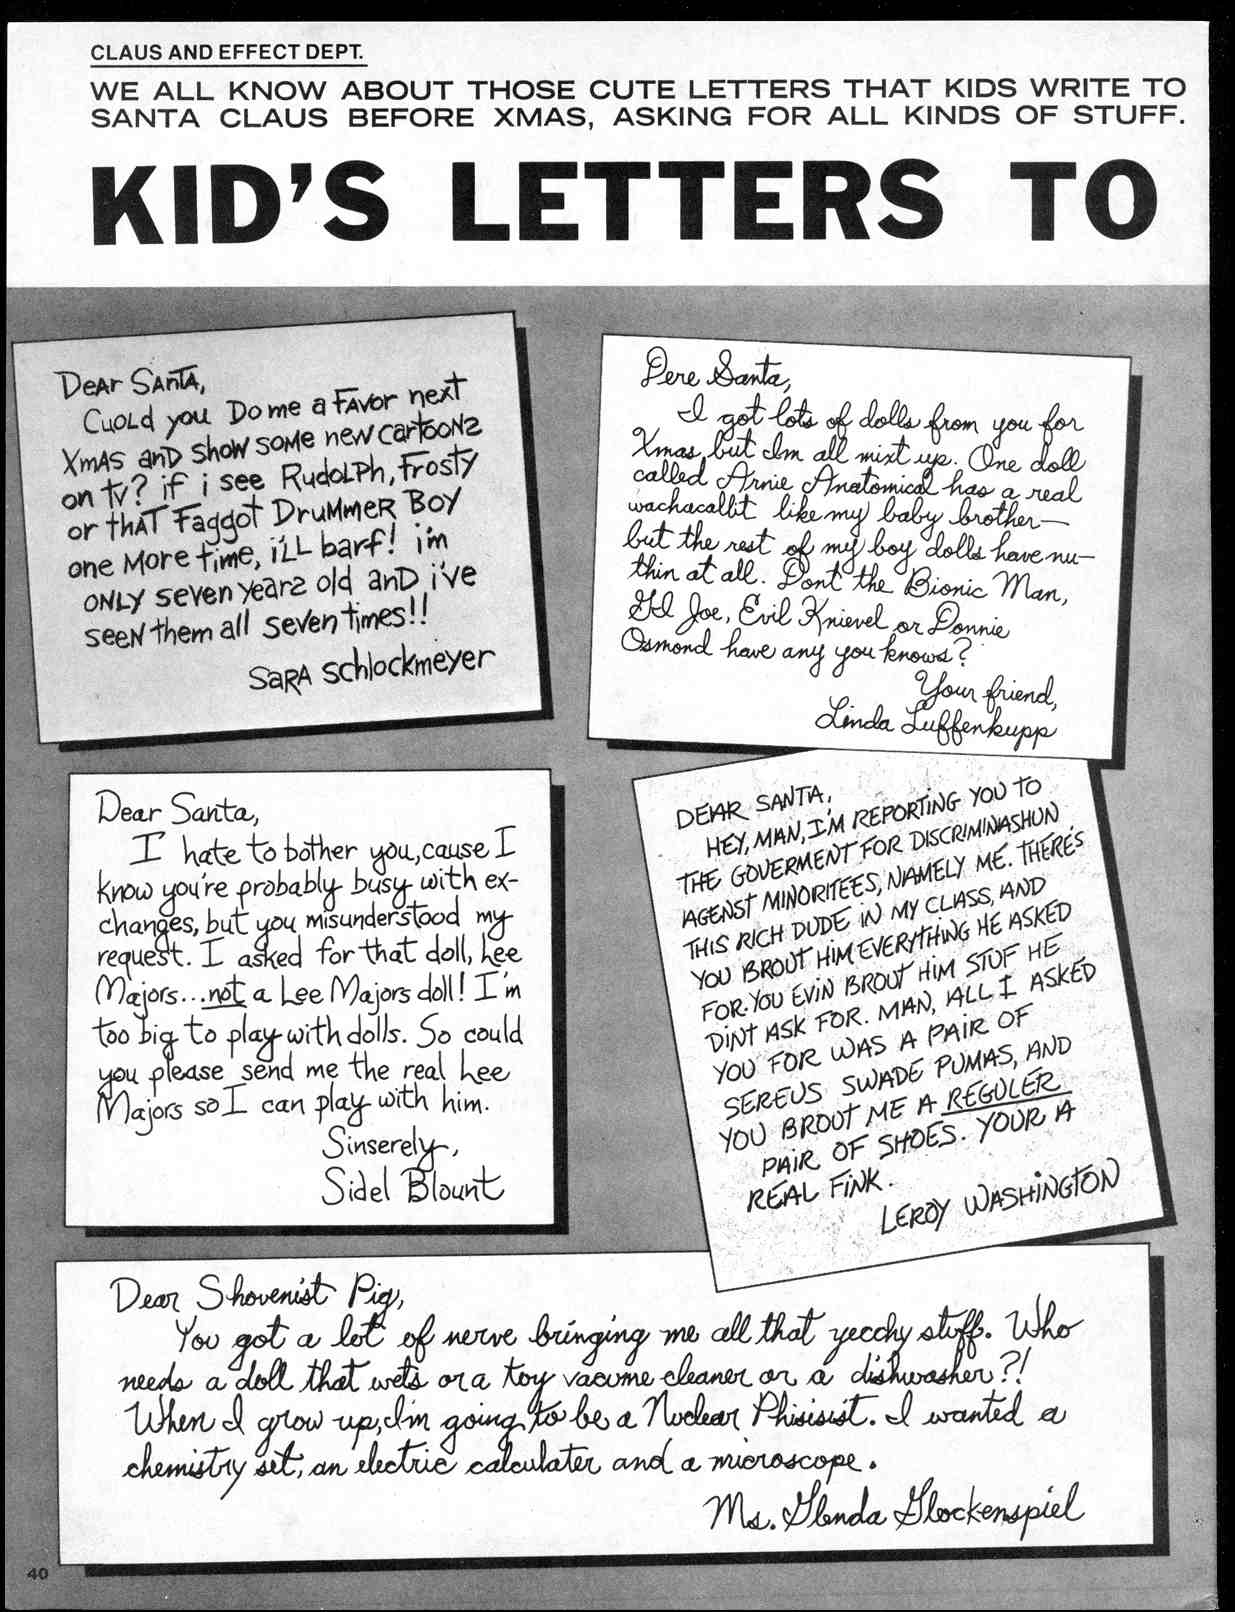 CLAUS AND EFFECT DEPT.
WE ALL KNOW ABOUT THOSE CUTE LETTERS THAT KIDS WRITE TO
SANTA CLAUS BEFORE XMAS, ASKING FOR ALL KINDS OF STUFF.
KID'S LETTERS TO
Dear Santa,
Cuold you Do me a Favor next
Xmas and show some new cartoons
on tv? if i see Rudolph, Frosty
or that Faggot Drummer Boy
one more time, i'll barf! i'm
only seven years old and i've
seen them all seven times!!
Sara Schlockmeyer
Dere Santa,
I got lots of dolls from you for
Xmas, but Im all mixt up. One doll
called Arnie Anatomical has a real
wachacallit like my baby brother—
but the rest of my boy dolls have nu-
thin at all. Dont the Bionic Man,
GI Joe, Evil Knievel or Donnie
Osmond have any you knows?
Your friend,
Linda Luffenkupp
Dear Santa,
I hate to bother you, cause I
know you're probably busy with ex-
changes, but you misunderstood my
request. I asked for that doll, Lee
Majors...not a Lee Majors doll! I'm
too big to play with dolls. So could
you please send me the real Lee
Majors so I can play with him.
Sinserely,
Sidel Blount
DEAR SANTA,
HEY, MAN, I'M REPORTING YOU TO
THE GOVERMENT FOR DISCRIMINASHUN
AGENST MINORITEES, NAMELY ME. THERE'S
THIS RICH DUDE IN MY CLASS, AND
YOU BROUT HIM EVERYTHING HE ASKED
FOR. YOU EVIN BROUT HIM STUF HE
DINT ASK FOR. MAN, ALL I ASKED
YOU FOR WAS A PAIR OF
SEREUS SWADE PUMAS, AND
YOU BROUT ME A REGULER
PAIR OF SHOES. YOUR A
REAL FINK.
LEROY WASHINGTON
Dear Shovenist Pig,
You got a lot of nerve bringing me all that yecchy stuff. Who
needs a doll that wets or a toy vacume cleaner or a dishwasher?!
When I grow up, I'm going to be a Nuclear Phisisist. I wanted a
chemistry set, an electric calculater and a microscope.
Ms. Glenda Glockenspiel
40